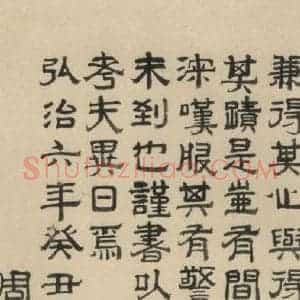 兼得其心與得
其蹟是豈有間
深嘆服其有警
未到也謹書以
考夫異日焉
弘治六年癸丑
周
Shufaziliao.com